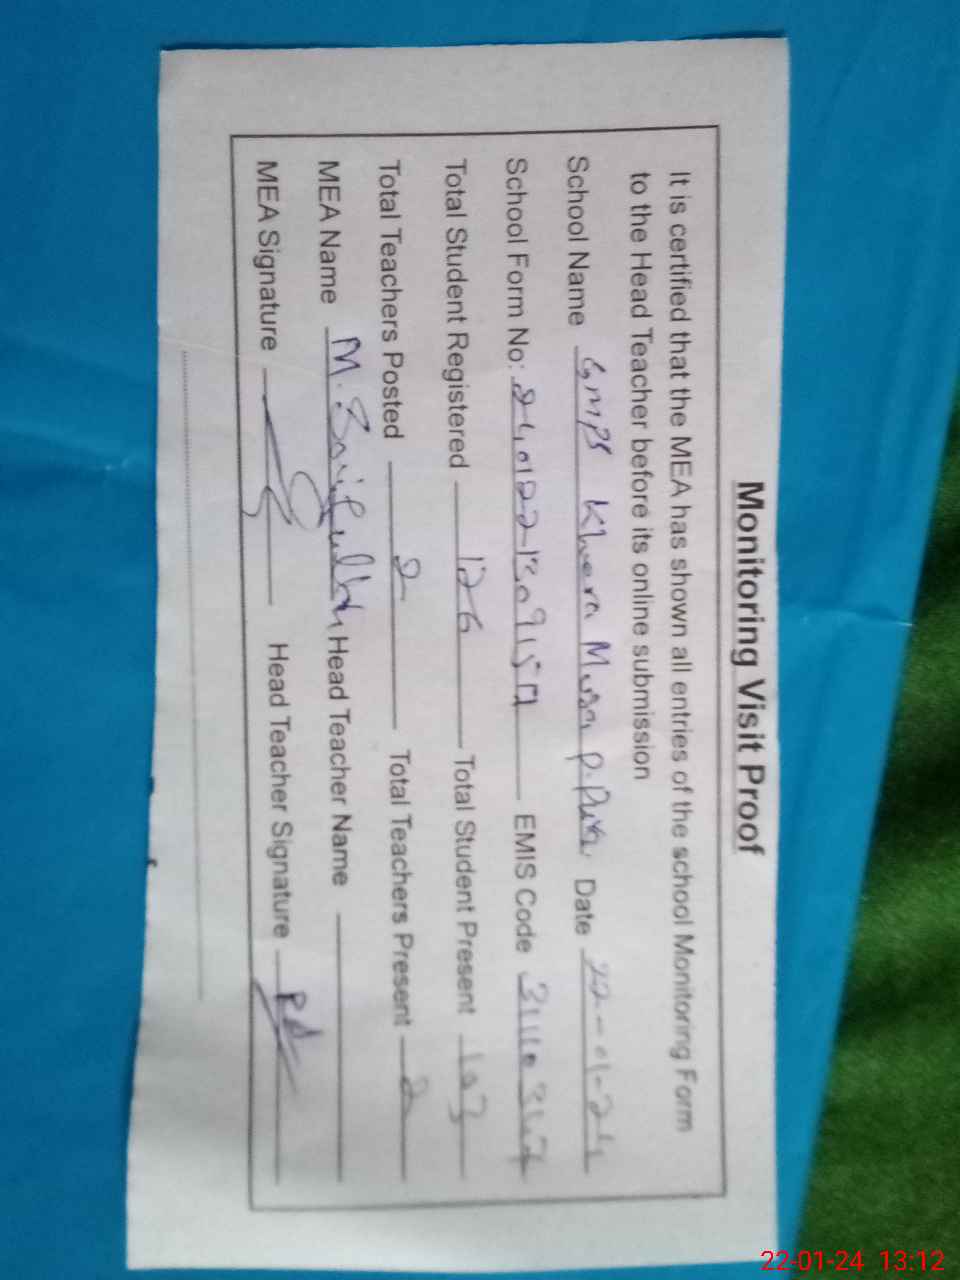 Monitoring Visit Proof
It is certified that the MEA has shown all entries of the school Monitoring Form
to the Head Teacher before its online submission
School Name GMPS Khera Musa Date 22-01-24
School Form No: EMIS Code
Total Student Registered 126 Total Student Present 103
Total Teachers Posted 2 Total Teachers Present 2
MEA Name M. Head Teacher Name
MEA Signature Head Teacher Signature
22-01-24 13:12